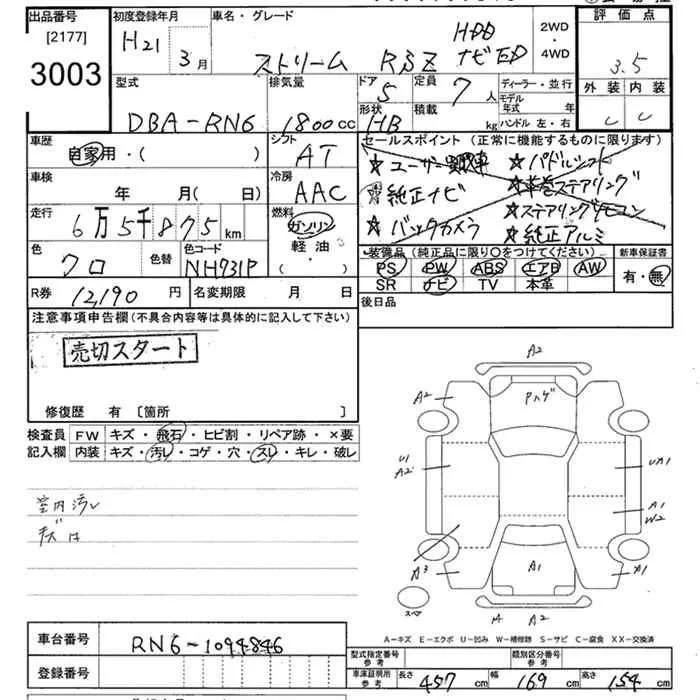 出品番号 [2177] 3003
初度登録年月 H21 3月
車名・グレード ストリーム RSZ HDD ナビED
2WD・4WD
評価点 3.5
外装 内装
型式 DBA-RN6
排気量 1800cc
ドア 5
形状 HB
定員 7人
積載 kg
ディーラー・並行
モデル年式 年
ハンドル 左・右
車歴 自家用・( )
シフト AT
セールスポイント (正常に機能するものに限ります)
★ユーザー買取車 ★パドルシフト
純正ナビ ★本革巻ステアリング
★バックカメラ ★ステアリングリモコン
★純正アルミ
車検 年 月(日)
冷房 AAC
走行 6万5千875km
燃料 ガソリン 軽油・( )
色 クロ 色替
色コード NH731P
装備品 (純正品に限り○をつけてください)
PS PW ABS エアB AW
SR ナビ TV 本革
新車保証書 有・無
R券 12,190円 名変期限 月 日
後日品
注意事項申告欄(不具合内容等は具体的に記入して下さい)
売切スタート
修復歴 有 [箇所 ]
検査員記入欄
FW キズ・飛石・ヒビ割・リペア跡・×要
内装 キズ・汚レ・コゲ・穴・スレ・キレ・破レ
室内汚レ
A2
A2 Pハゲ
U1 A2 UA1
A1 W2
A3 A1 A1
スペア A2
A-キズ E-エクボ U-凹み W-補修跡 S-サビ C-腐食 XX-交換済
車台番号 RN6-1094846
登録番号
型式指定番号 参考 類別区分番号 参考
車庫証明用 参考 長さ 457cm 幅 169cm 高さ 154cm